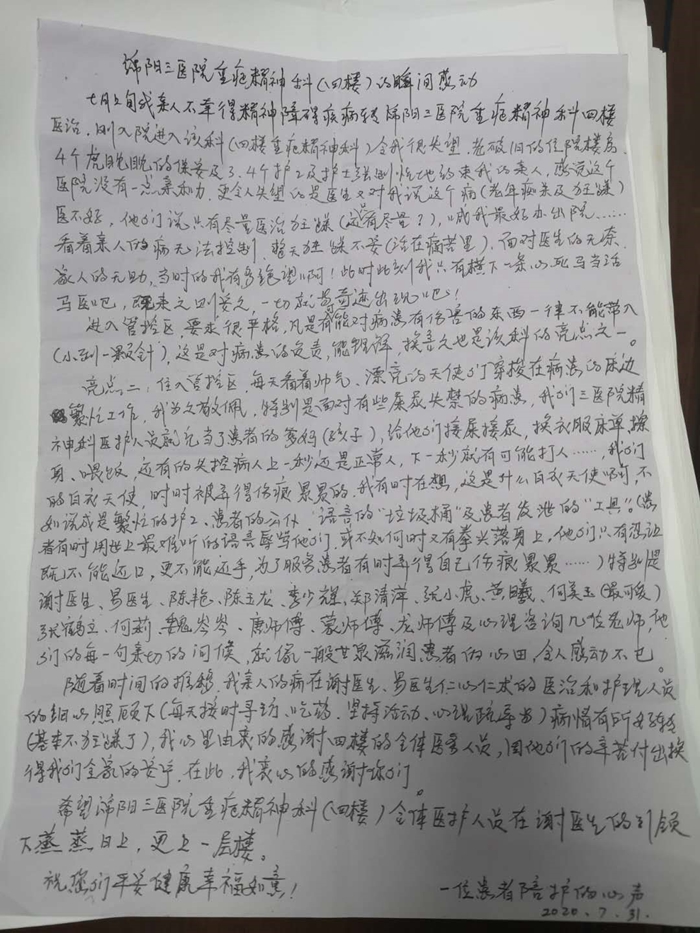 绵阳三医院重症精神科(四楼)的瞬间感动
七月上旬我亲人不幸得精神障碍疾病转绵阳三医院重症精神科四楼
医治,刚入院进入该科(四楼重症精神科)令我很失望,老破旧的住院楼房,
4个虎眈眈的保安及3、4个护工及护士强制性地约束我的亲人,感觉这个
医院没有一点亲和力,更令人失望的是医生又对我说这个病(老年痴呆及狂躁)
医不好,他们说只有尽量医治狂躁(还有尽量?),或我最好办出院……
看着亲人的病无法控制,整天狂躁不安(活在病苦里),面对医生的无奈,
家人的无助,当时的我有多绝望啊!此时此刻我只有横下一条心死马当活
马医吧,既来之则安之,一切就是奇迹出现吧!
进入管控区,要求很严格,凡是有能对病患有伤害的东西一律不能带入
(小到一颗针),这是对病患的负责,能理解,换言之也是该科的亮点之一。
亮点二:住入管控区,每天看着帅气、漂亮的天使们穿梭在病患的床边
繁忙工作,我为之敬佩,特别是面对有些屎尿失禁的病患,我们三医院精
神科医护人员就充当了患者的爹妈(孩子),给他们接屎接尿,换衣服床单擦
身、喂饭,还有的失控病人上一秒还是正常人,下一秒就有可能打人……,我们
的白衣天使,时时被弄得伤痕累累的,我有时在想,这是什么白衣天使啊,不
如说成是繁忙的护工、患者的 语言的"垃圾桶"及患者发泄的"工具"。(患
者有时用世上最难听的语言辱骂他们,或不知何时又有拳头落身上,他们只有忍让
既不能还口,更不能还手,为了服务患者有时弄得自己伤痕累累……)特别是
谢医生、易医生、陈艳、陈玉龙、李少辉、郑清萍、张小虎、黄曦、何美玉(最可爱)
张鹤立、何莉、魏岑岑、唐师傅、蒙师傅、龙师傅及心理咨询几位老师,他
们的每一句亲切的问候,就像一般甘泉滋润患者的心田,令人感动不已。
随着时间的推移,我亲人的病在谢医生、易医生仁心仁术的医治和护理人员
的细心照顾下(每天按时寻访、吃药、坚持活动、心理疏导等)病情有所好转
(基本不狂躁了),我心里由衷的感谢四楼的全体医务人员,因他们的辛苦付出换
得我们全家的安宁。在此,我衷心的感谢你们。
希望绵阳三医院重症精神科(四楼)全体医护人员在谢医生的引领
下蒸蒸日上,更上一层楼。
祝您们平安健康幸福如意!
一位患者陪护的心声
2020.7.31.